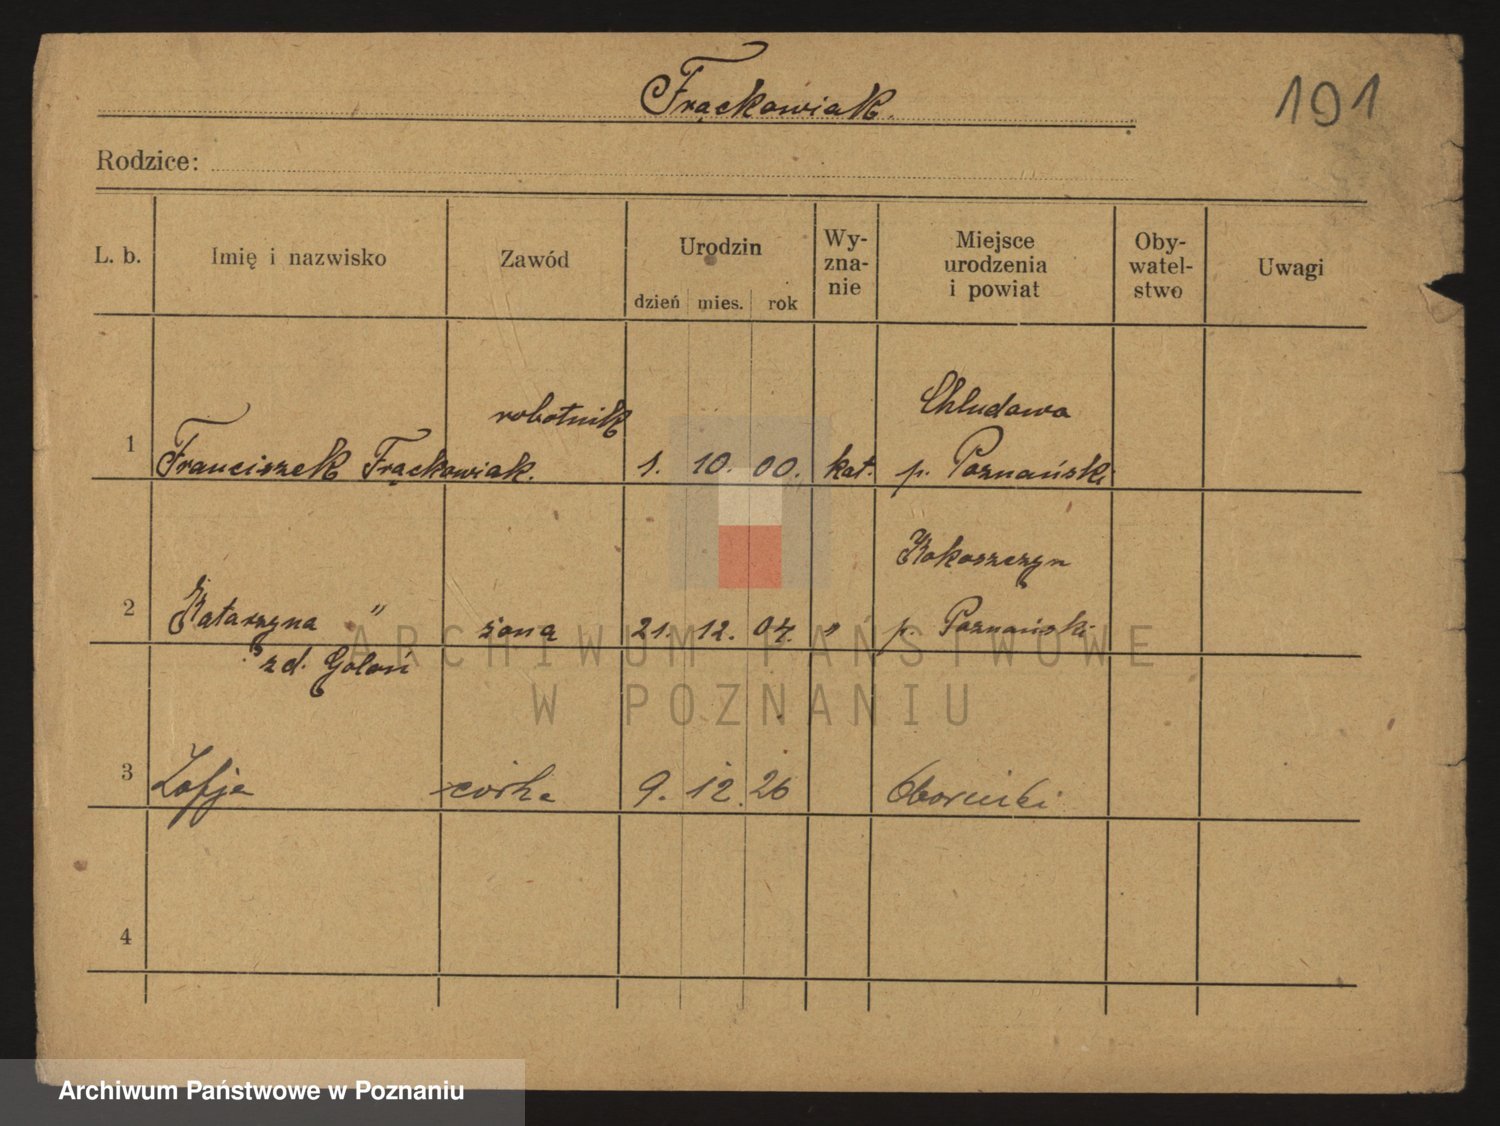 Frąckowiak.
191
Rodzice:
L. b.
Imię i nazwisko
Zawód
Urodzin
dzień mies. rok
Wy-
zna-
nie
Miejsce
urodzenia
i powiat
Oby-
watel-
stwo
Uwagi
robotnik
Chludowo
1 Franciszek Frąckowiak. 1. 10. 00. kat. p. Poznański
Rokoszczyn
2 Katarzyna " żona 21. 12. 04. " p. Poznański
zd. Goloń
3 Zofja córka 9. 12. 26 Oborniki
4
ARCHIWUM PAŃSTWOWE
W POZNANIU
Archiwum Państwowe w Poznaniu